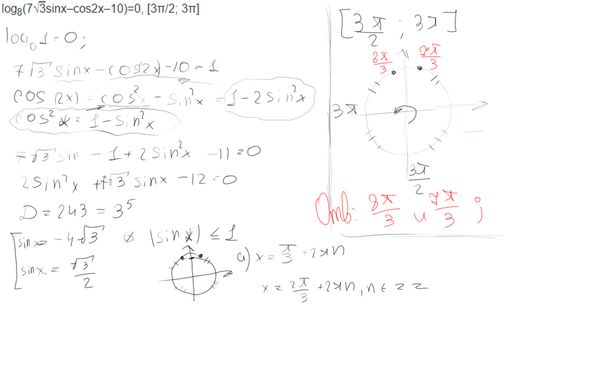 log₈(7√3sinx–cos2x–10)=0, [3π/2; 3π]
log₈1=0;
7√3 sinx – cos2x – 10 = 1
cos(2x) = cos²x – sin²x = 1 – 2sin²x
cos²x = 1 – sin²x
7√3 sin – 1 + 2sin²x – 11 = 0
2sin²x + 7√3 sinx – 12 = 0
D = 243 = 3⁵
sinx = –4√3 ∅ |sinx| ≤ 1
sinx = √3/2
a) x = π/3 + 2πn
x = 2π/3 + 2πn, n ∈ Z
[3π/2 ; 3π]
8π/3 7π/3
3π
3π/2
Отв: 8π/3 и 7π/3 ;